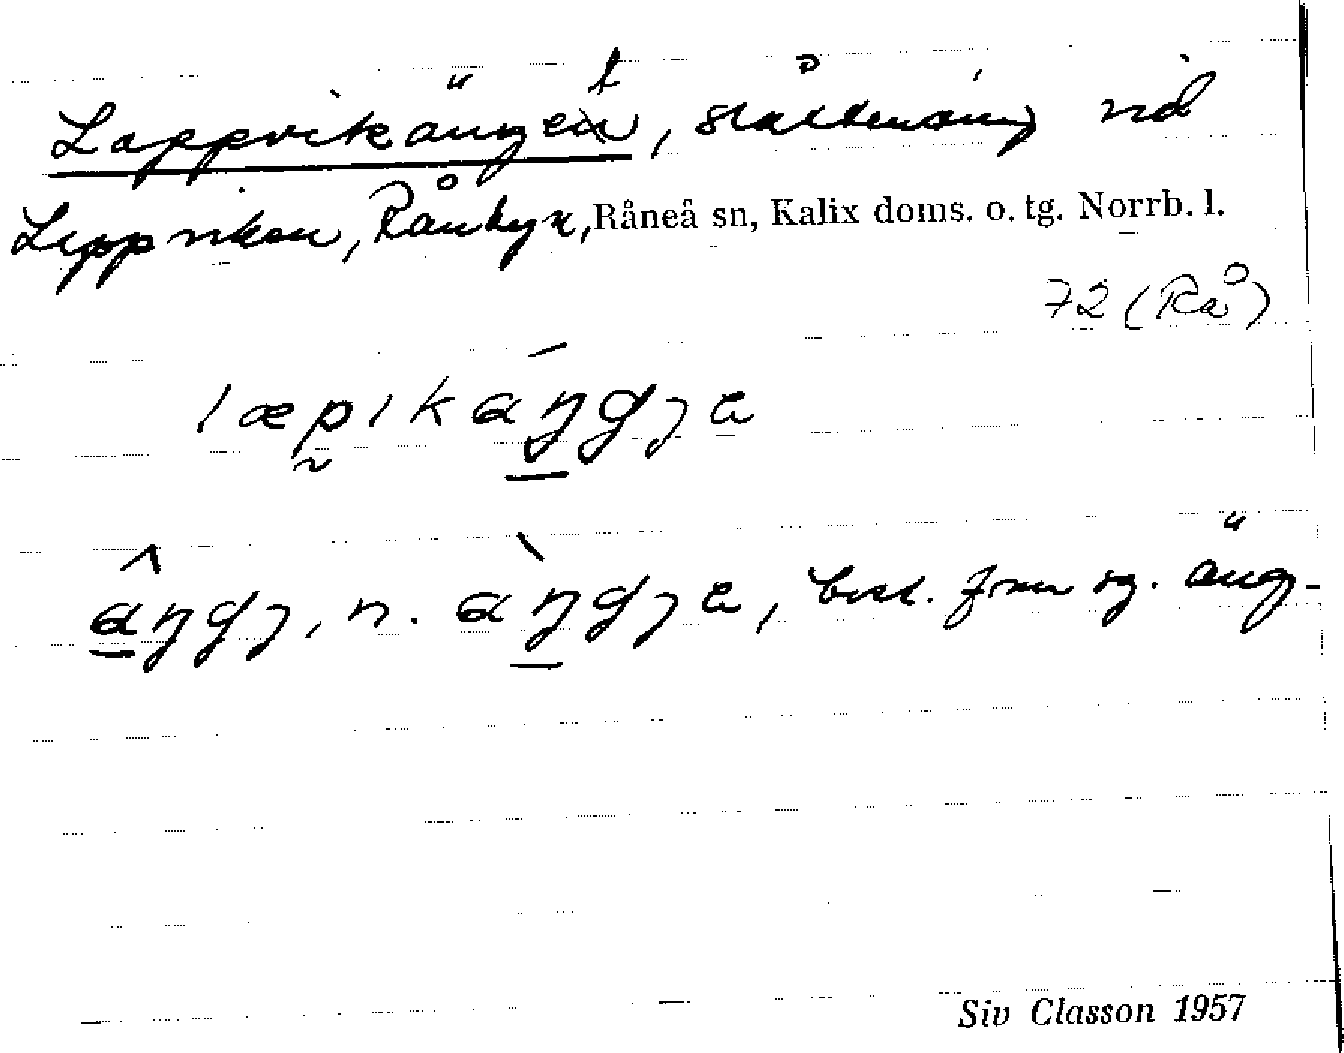 Lappvikänget, slåtteräng vid
Lappviken, Rånbyn, Råneå sn, Kalix doms. o. tg. Norrb. l.
72 (Rå)
læpikáŋgɟe
âŋgɟ, n. àŋgɟe, best. form sg. äng-
Siv Classon 1957